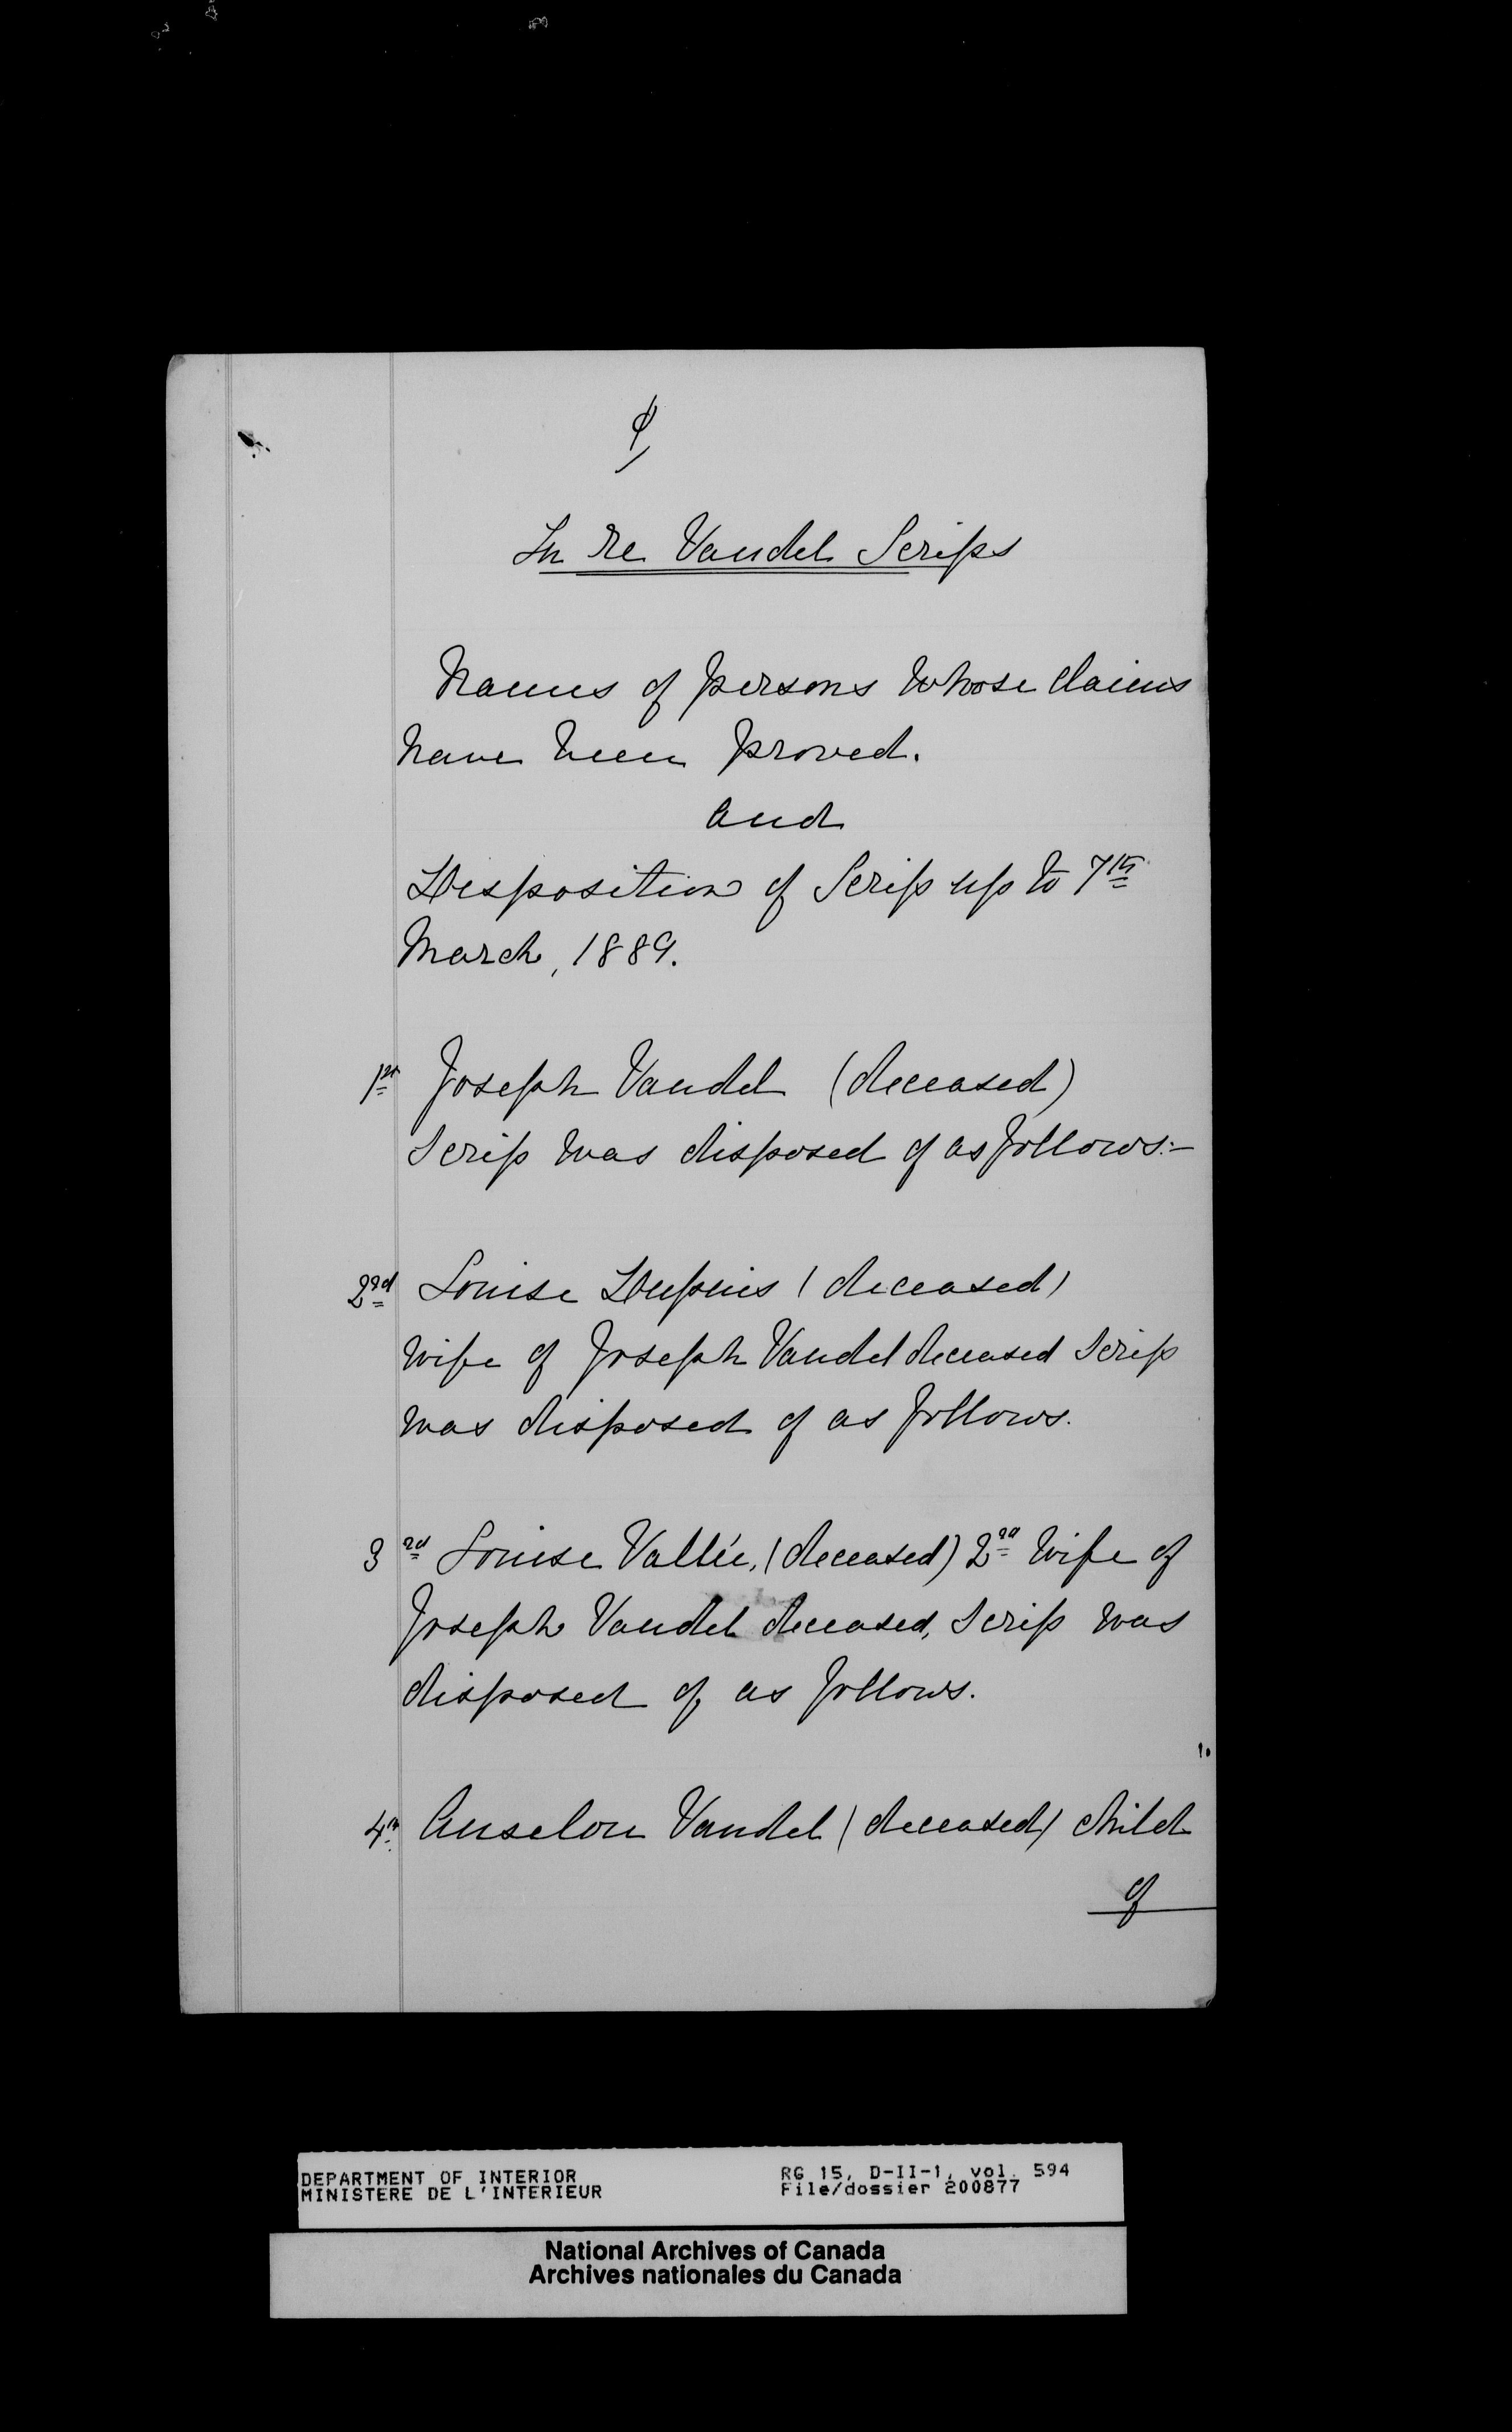 In re Vandel Scrips
Names of persons whose claims
have been proved.
and
Disposition of Scrip up to 7th
March, 1889.
1st Joseph Vandel (deceased)
Scrip was disposed of as follows:-
2nd Louise Dupuis (deceased)
wife of Joseph Vandel deceased Scrip
was disposed of as follows.
3rd Louise Vallée, (deceased) 2nd wife of
Joseph Vandel deceased, Scrip was
disposed of as follows.
4th Anselon Vandel (deceased) child
of
DEPARTMENT OF INTERIOR RG 15, D-II-1, vol. 594
MINISTERE DE L'INTERIEUR File/dossier 200877
National Archives of Canada
Archives nationales du Canada